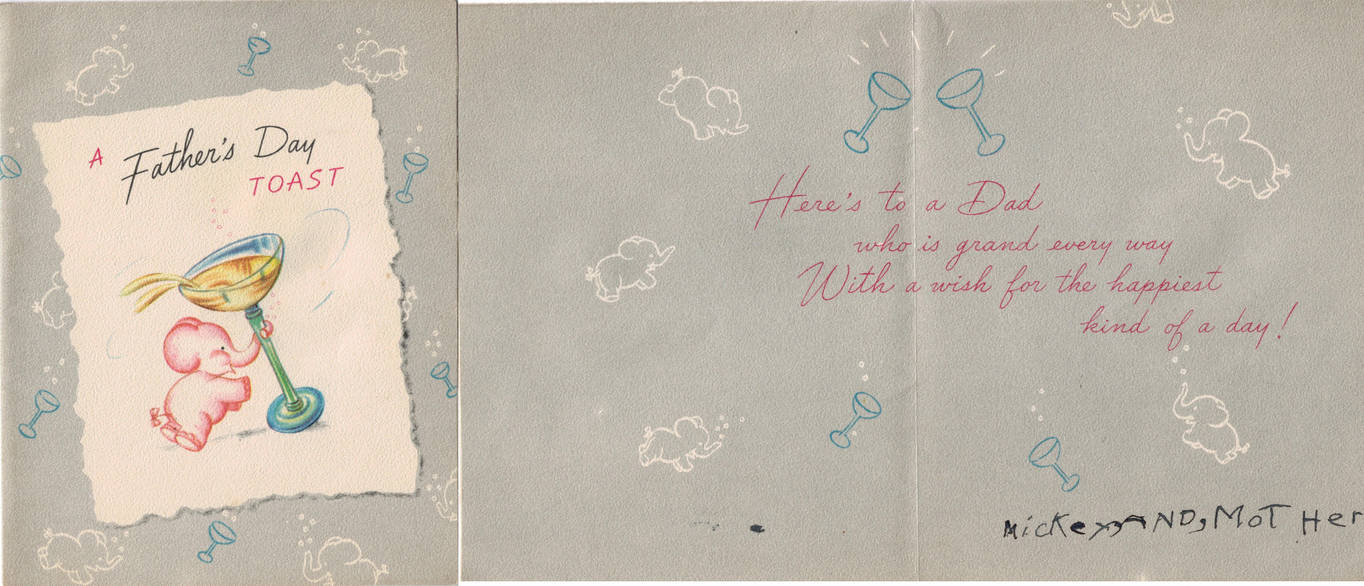 A Father's Day
TOAST
Here's to a Dad
who is grand every way
With a wish for the happiest
kind of a day!
MickeyAND, MOTHer